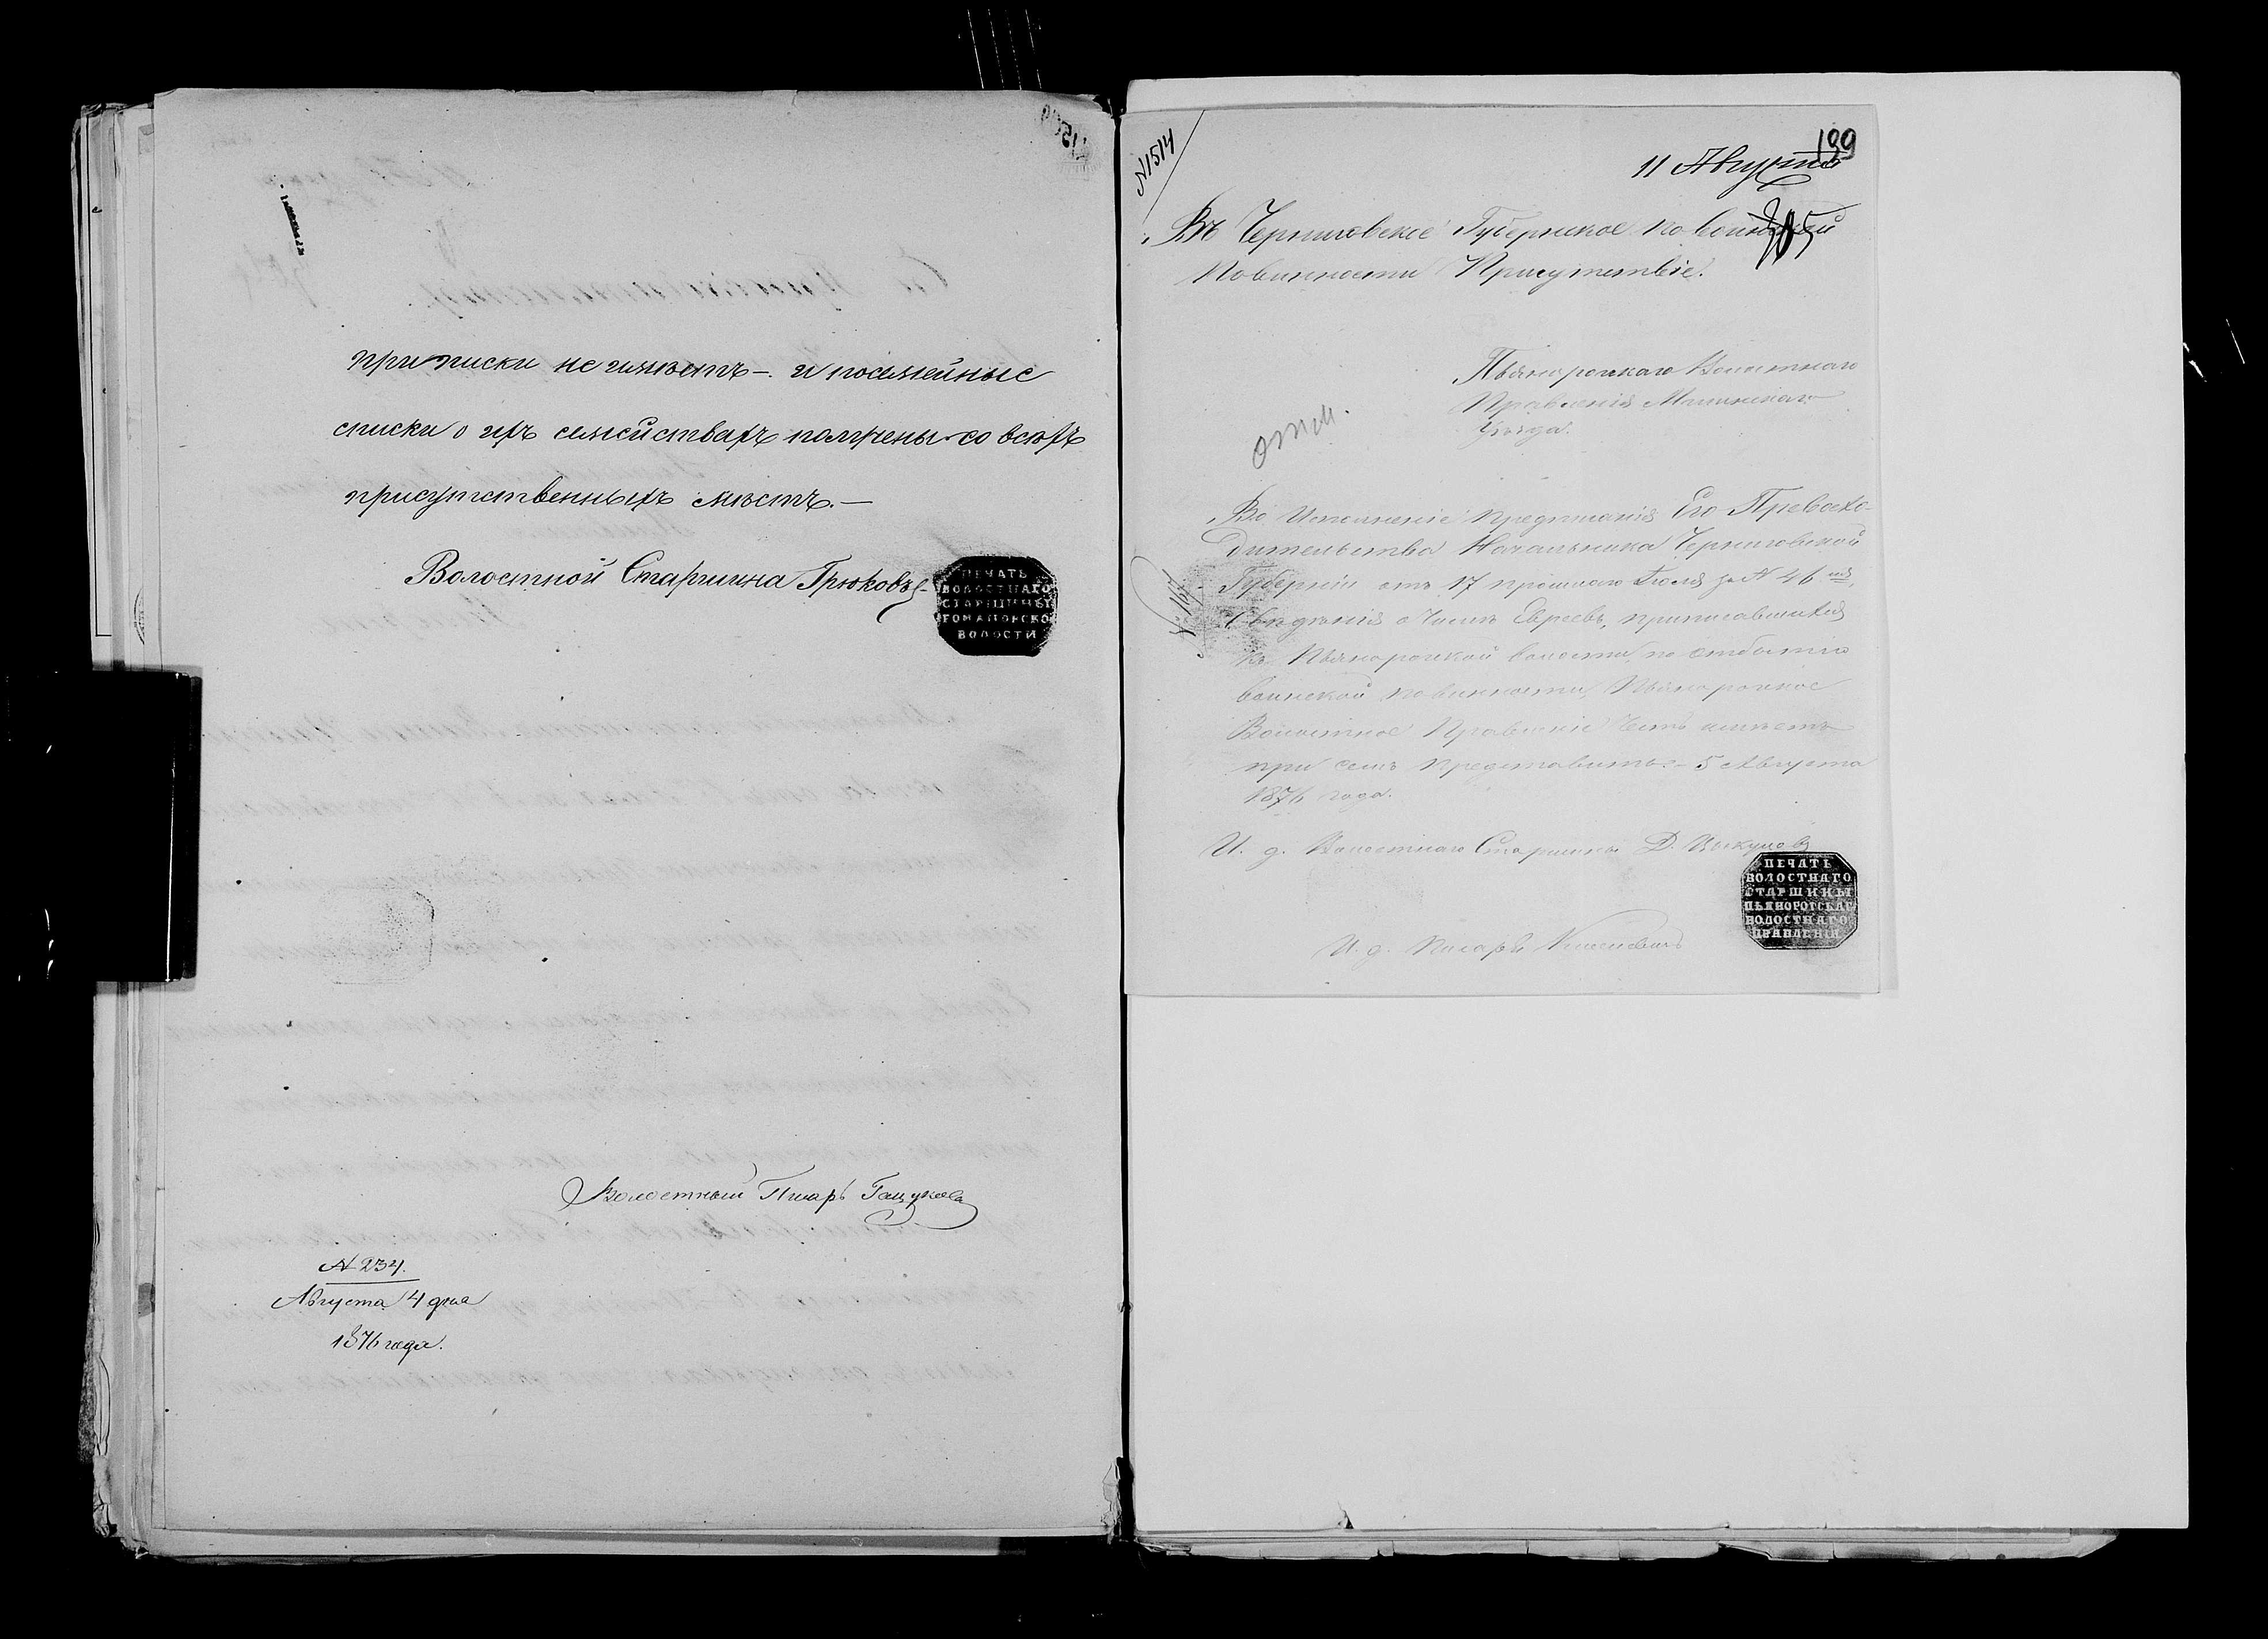 приписки не имѣютъ – и посемейные
списки о ихъ семействахъ получены со всѣхъ
присутственныхъ мѣстъ. –
Волостной Старшина Грюковъ
ПЕЧАТЬ
ВОЛОСТНАГО
СТАРШИНЫ
РОМАНОВСКО
ВОЛОСТИ
Волостный Писарь
№ 234.
Августа 4 дня
1876 года.
№1514
199
11 Августа
Въ Черниговское Губернское по воинской
Повинности Присутствіе.
Пьянорогскаго Волостнаго
Правленія Мглинскаго
Уѣзда.
Во исполненіе предписанія Его Превосхо-
дительства Начальника Черниговской
Губерніи отъ 17 прошлаго Іюля за № 46
Свѣдѣнія о числѣ Евреевъ, приписавшихся
къ Пьянорогской волости, по отбытію
воинской повинности, Пьянорогское
Волостное Правленіе честь имѣетъ
при семъ представить. – 5 Августа
1876 года.
И. д. Волостнаго Старшины Д.
ПЕЧАТЬ
ВОЛОСТНАГО
СТАРШИНЫ
ПЬЯНОРОГСКАГ
ВОЛОСТНАГО
ПРАВЛЕНІЯ
И. д. Писаря